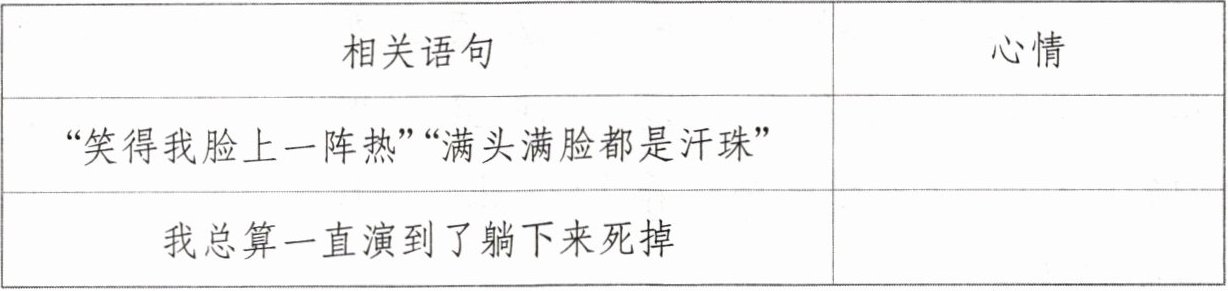 相关语句 心情
“笑得我脸上一阵热”“满头满脸都是汗珠”
我总算一直演到了躺下来死掉